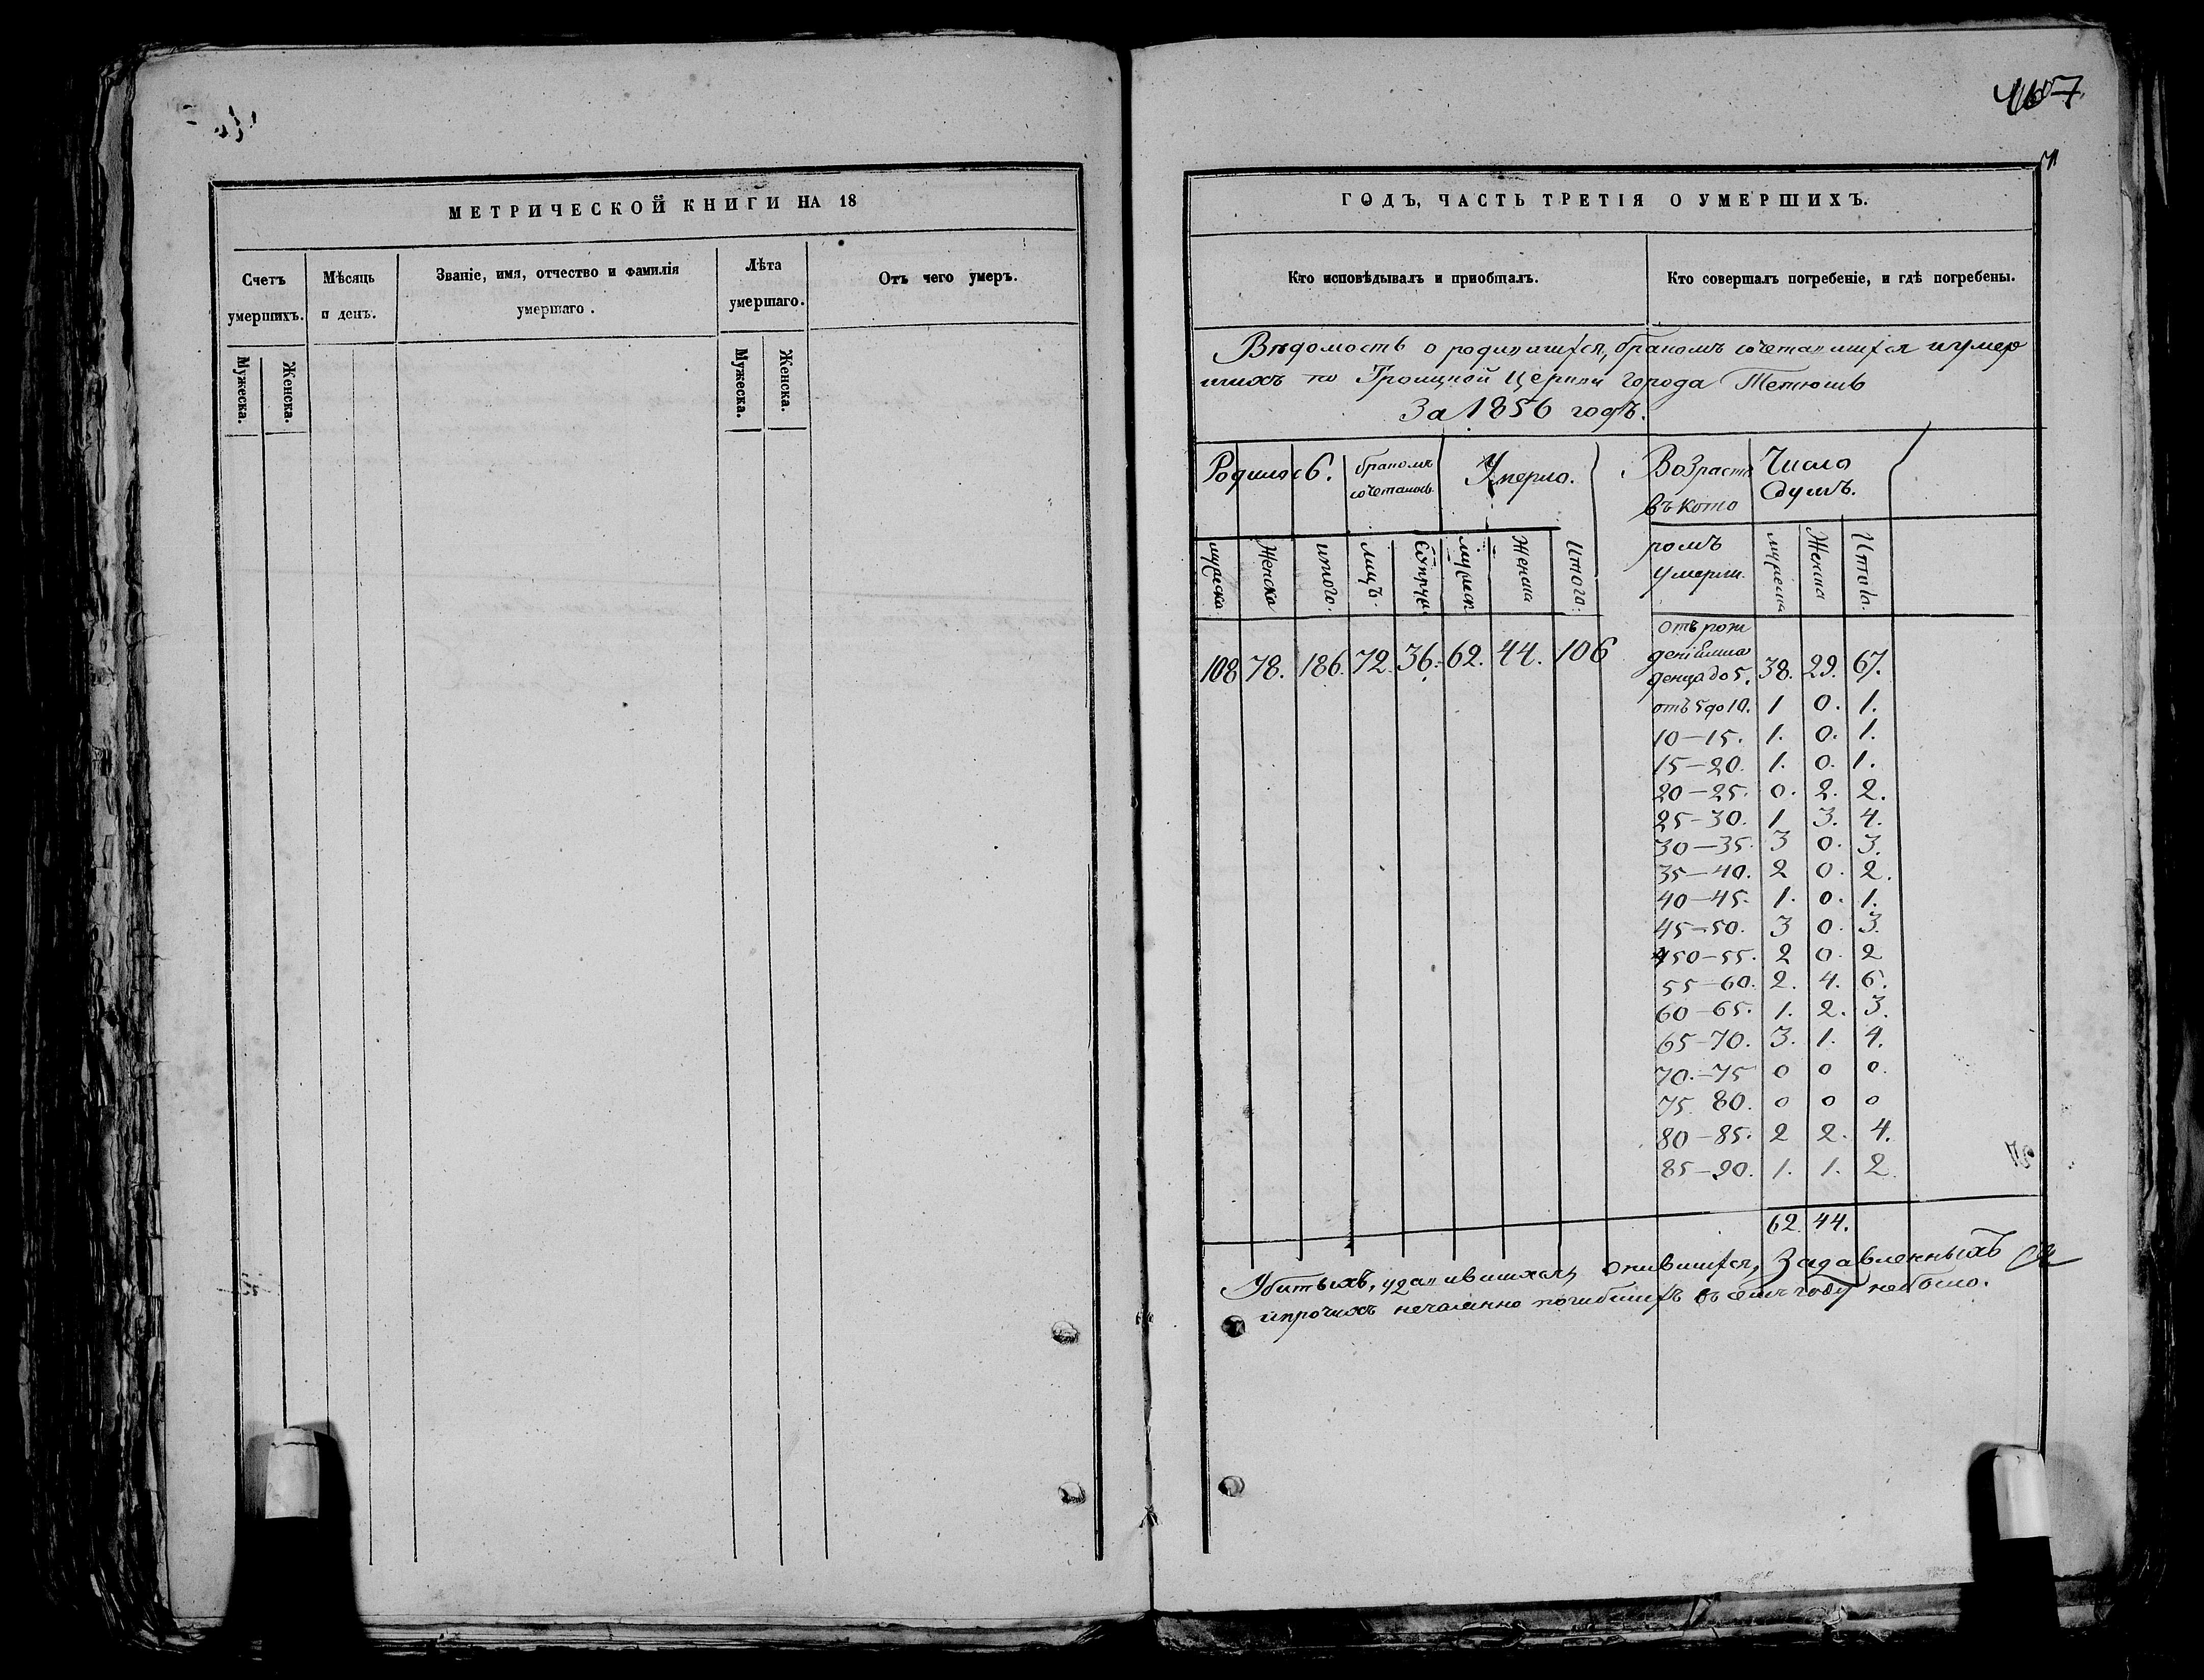 МЕТРИЧЕСКОЙ КНИГИ НА 18
Счетъ умершихъ.
Мѣсяць и день.
Званіе, имя, отчество и фамилія умершаго.
Лѣта умершаго.
Отъ чего умеръ.
Мужеска.
Женска.
Мужеска.
Женска.
ГОДЪ, ЧАСТЬ ТРЕТІЯ О УМЕРШИХЪ.
Кто исповѣдывалъ и пріобщалъ.
Кто совершалъ погребеніе, и гдѣ погребены.
Вѣдомость о родившихся, бракомъ сочетавшихся и умер
шихъ по Троицкой Церкви города Тетюшъ
За 1856 годъ.
Родилось. бракомъ сочеталось. Умерло.
Возрастъ въ кото
ромъ умерш.
Число Душъ.
мужеска Женска итого. лицъ. Супруж. мужеск. Женска Итого.
мужеска Женска Итого.
108 78. 186. 72. 36. 62. 44. 106
отъ рож
денія мла
денца до 5. 38. 29. 67.
отъ 5 до 10. 1 0. 1.
10—15. 1. 0. 1.
15—20. 1. 0. 1.
20—25. 0. 2. 2.
25—30. 1 3. 4.
30—35. 3 0. 3.
35—40. 2 0. 2.
40—45. 1. 0. 1.
45—50. 3 0. 3.
50—55. 2 0. 2
55—60. 2. 4. 6.
60—65. 1. 2. 3.
65—70. 3. 1. 4.
70.—75 0 0 0.
75. 80. 0 0 0
80—85. 2 2. 4.
85—90. 1. 1. 2
62. 44.
Убитыхъ, удавившихся, опившихся, Задавленныхъ
и прочихъ нечаянно погибшихъ въ семъ году небыло.